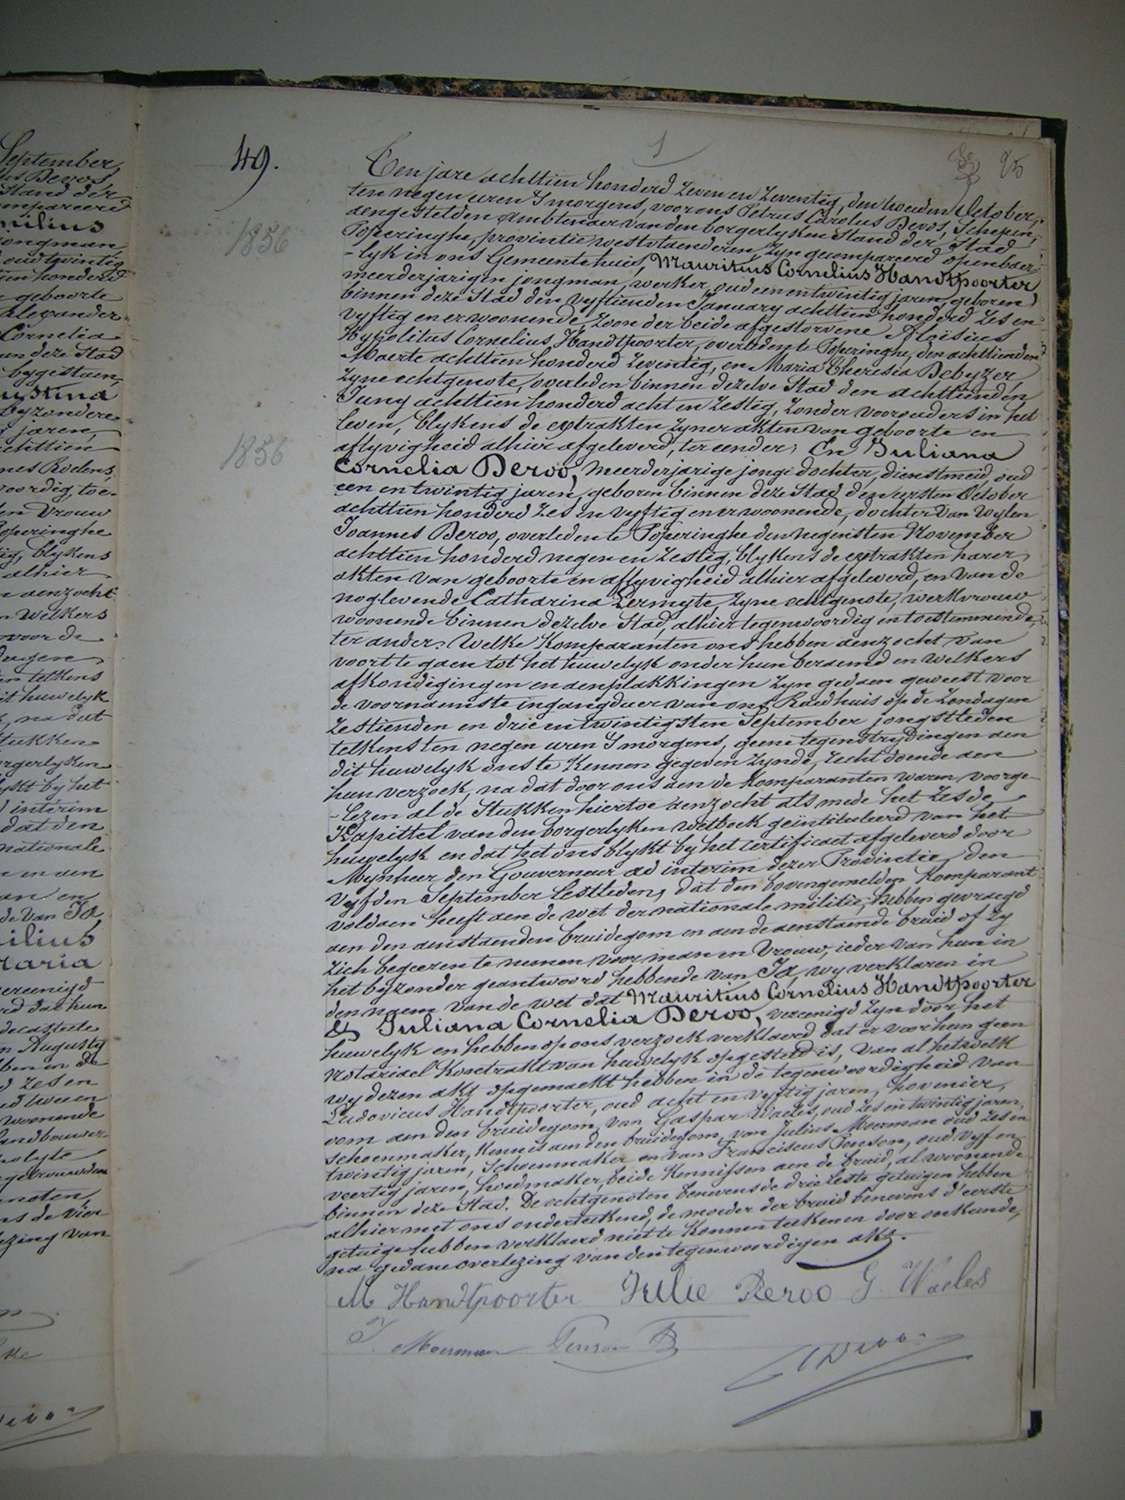 49.
1
95
1856
1856
Ten jare achttien honderd zeven en zeventig, den tweeden October,
ten negen uren 's morgens, voor ons Petrus Carolus Devos, Schepen,
aengestelden Ambtenaer van den borgerlyken Stand der Stad
Poperinghe, provintie westvlaenderen, zyn gecompareerd openbaer-
-lyk in ons Gemeentehuis, Mauritius Cornelius Handtpoorter
meerderjarigen jongman, werker, oud een en twintig jaren, geboren
binnen deze Stad den vyftienden January achttien honderd zes en
vyftig en er woonende, zoon der beide afgestorvene Aloisius
Hypolitus Cornelius Handtpoorter, overleden te Poperinghe, den achttienden
Maerte achttien honderd zeventig, en Maria Theresia Debyzer,
zyne echtgenote, overleden binnen dezelve Stad den achttienden
Juny achttien honderd acht en zestig, zonder voorouders in het
leven, blykens de extrakten zyner akten van geboorte en
aflyvigheid alhier afgeleverd, ter eender; En Juliana
Cornelia Deroo, meerderjarige jonge dochter, dienstmeid, oud
een en twintig jaren, geboren binnen deze Stad den eersten October
achttien honderd zes en vyftig en er woonende, dochter van wylen
Joannes Deroo, overleden te Poperinghe den negensten November
achttien honderd negen en zestig, blykens de extrakten harer
akten van geboorte en aflyvigheid alhier afgeleverd, en van de
noglevende Catharina Lermyte, zyne echtgenote, werkvrouw
woonende binnen dezelve Stad, alhier tegenwoordig en toestemmende,
ter ander. Welke Komparanten ons hebben aenzocht van
voort te gaen tot het huwelyk onder hun beraemd en welkers
afkondigingen en aenplakkingen zyn gedaen geweest voor
de voornaemste ingangdeur van ons Raedhuis op de Zondagen
zestienden en drie en twintigsten September jongstleden
telkens ten negen uren 's morgens, geene tegenstrydingen aen
dit huwelyk ons te kennen gegeven zynde, recht doende aen
hun verzoek, na dat door ons aen de Komparanten waren voorge-
-lezen al de Stukken hiertoe aenzocht als mede het zesde
Kapittel van den borgerlyken wetboek geintituleerd van het
huwelyk en dat het ons blykt by het certificaet afgeleverd door
Mynheer den Gouverneur ad interim dezer Provintie, den
vyfden September lestleden, dat den bovengemelden Komparant
voldaen heeft aen de wet der nationale militie, hebben gevraegd
aen den aenstaenden bruidegom en aen de aenstaende bruid of zy
zich begeeren te nemen voor man en Vrouw, ieder van hun in
het byzonder geantwoord hebbende van Ja, wy verklaren in
den naem van de wet dat Mauritius Cornelius Handtpoorter
& Juliana Cornelia Deroo, vereenigd zyn door het
huwelyk en hebben op ons verzoek verklaerd dat er voor hun geen
notariael kontrakt van huwelyk opgesteld is, van al hetwelk
wy dezen akt opgemaekt hebben in de tegenwoordigheid van
Ludovicus Handtpoorter, oud acht en vyftig jaren, hovenier,
oom aen den bruidegom, van Gaspar Waeles, oud zes en twintig jaren,
schoenmaker, kennis aen den bruidegom, van Julius Moerman oud zes en
twintig jaren, Schoenmaker en van Franciscus Penson, oud vyf en
veertig jaren, beide Kennissen aen de bruid, al woonende
binnen deze Stad. De echtgenoten benevens de drie leste getuigen hebben
alhier met ons onderteekend, de moeder der bruid benevens d'eerste
getuige hebben verklaerd niet te konnen teekenen door onkunde,
na gedane overlezing van den tegenwoordigen akt.
M Handtpoorter Julie Deroo G. Waeles
J. Moerman Penson